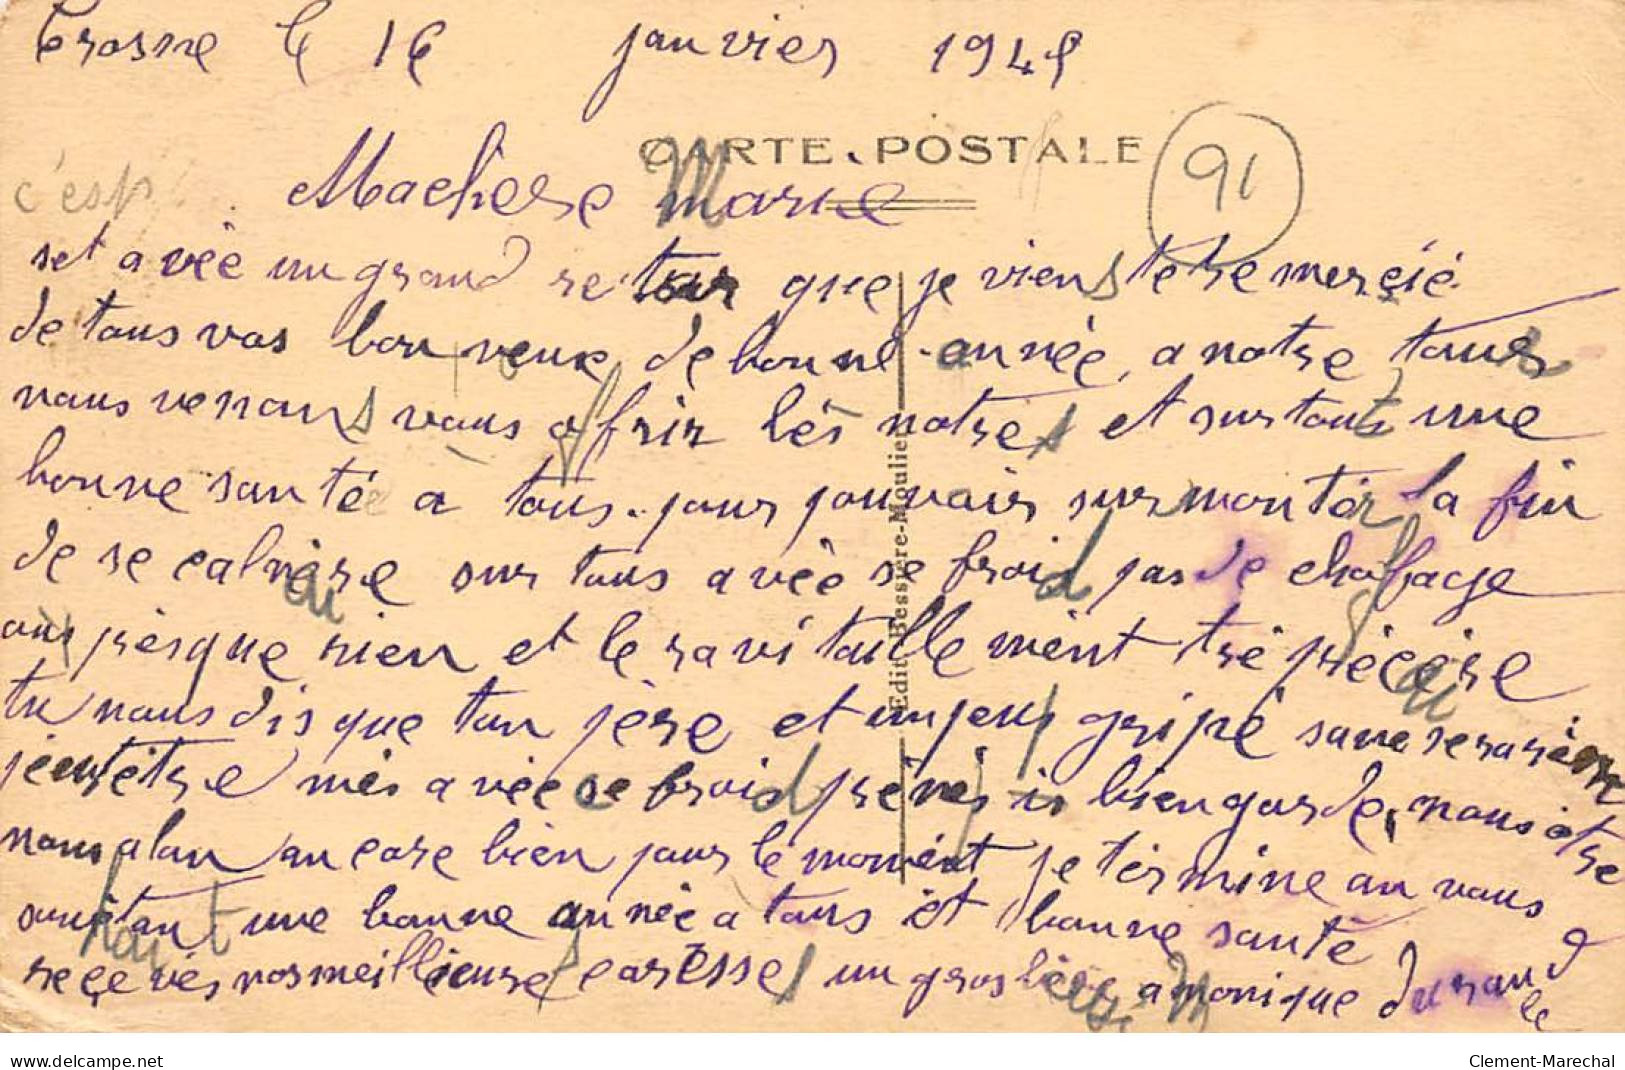 Crosne le 16 janvier 1945
CARTE POSTALE
91
c'est Machere Marie
set avée un grand retar que je viens te remerçié
de tous vos bon veux de bonne année, a notre tours
nous venons vous offrir lés notres et surtout une
bonne santé a tous. pour pouvoir surmonter la fin
de se calvére sur tous avée se froid pas de chofage
ou présque rien et le ravitaillement tré précére
tu nous dis que ton père et un peu gripé sane sera rien
peut étre més avée se froid prenés is bien garde, nous otre
nous alon ancore bien pour le momént je términe an vous
souétant une bonne année a tous ét bonne santé
reçevés nos meillieures caresses un gros a monique durand
Edit. Bessière-Moulier
www.delcampe.net
Clement-Marechal